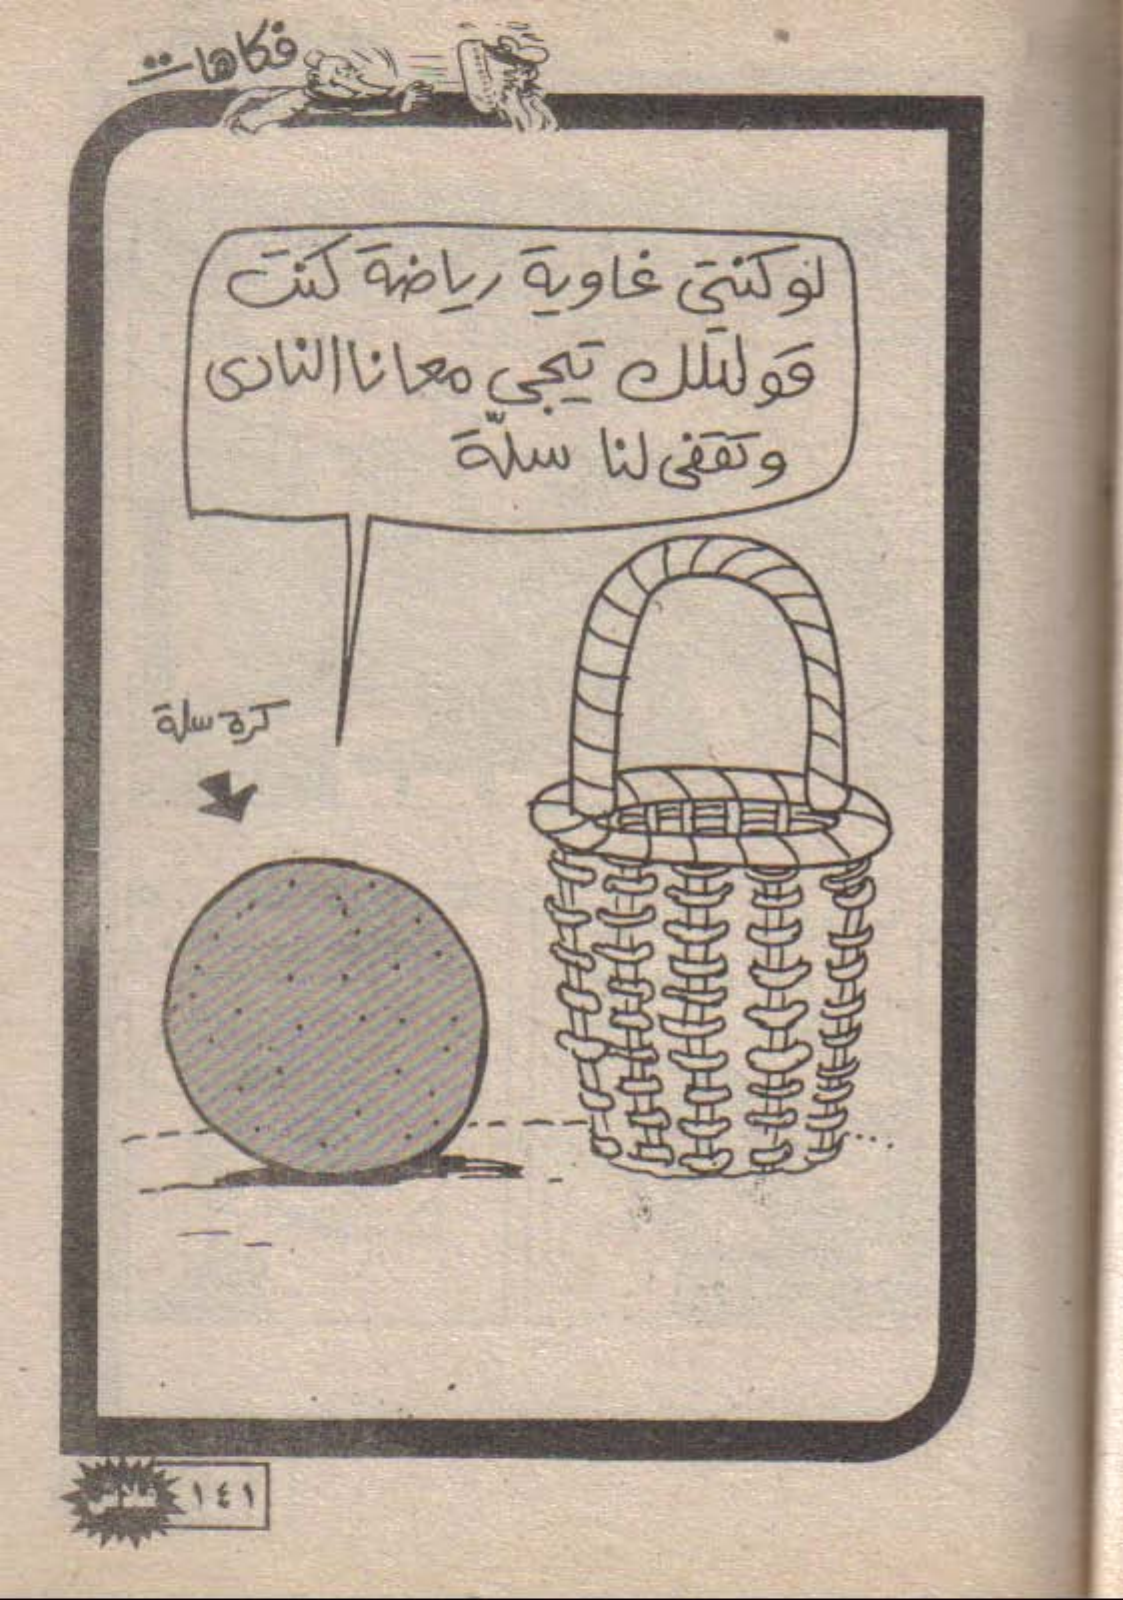 فكاهات
لو كنتى غاوية رياضة كنت
قولتلك تيجى معانا النادى
وتقفى لنا سلّة
كرة سلة
١٤١